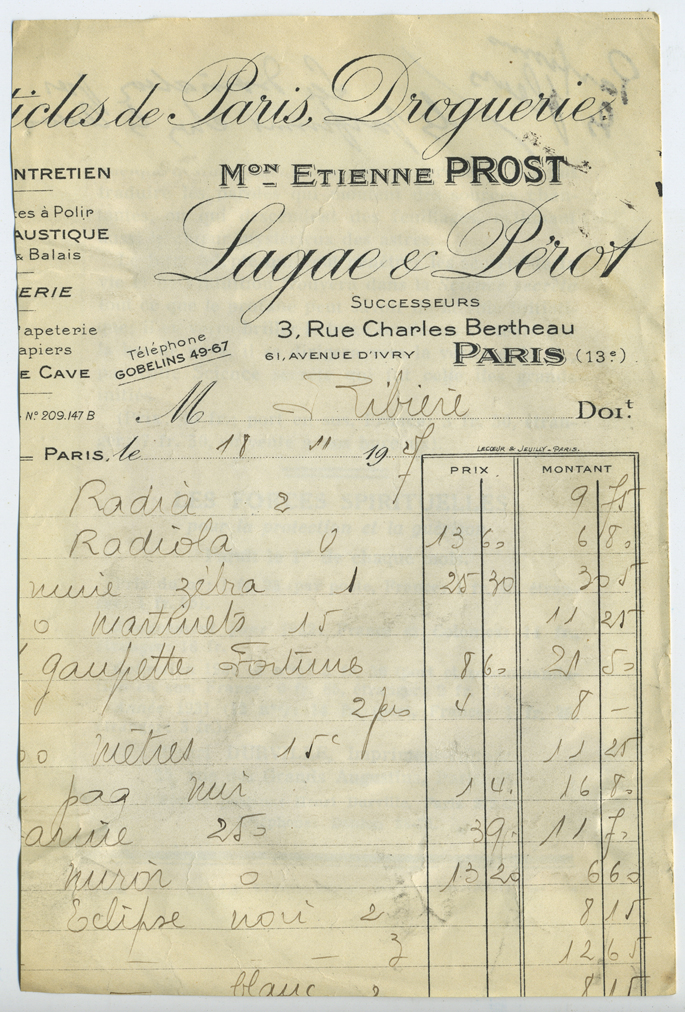 ticles de Paris, Droguerie.
NTRETIEN
Mon Etienne PROST
tes à Polir
AUSTIQUE
& Balais
Lagae & Pérot
ERIE
Successeurs
Papeterie
apiers
3, Rue Charles Bertheau
E CAVE
Téléphone
GOBELINS 49-67
61, AVENUE D'IVRY PARIS (13e)
N° 209.147 B
M Ribière Doit
PARIS, le 18 11 1927
LECŒUR & JEUILLY - PARIS.
PRIX MONTANT
Radia 2 9 75
Radiola 0 13 60 6 80
zébra 1 25 30 30 5
martinets 15 11 25
gaupette Fortuna 8 60 21 50
2 4 8 -
mètres 15c 11 25
pag 1 4. 16 80
250 39. 11 70
miror 0 13 20 6 60
Eclipse noir 2 8 15
- - 3 12 65
- blanc 2 8 15